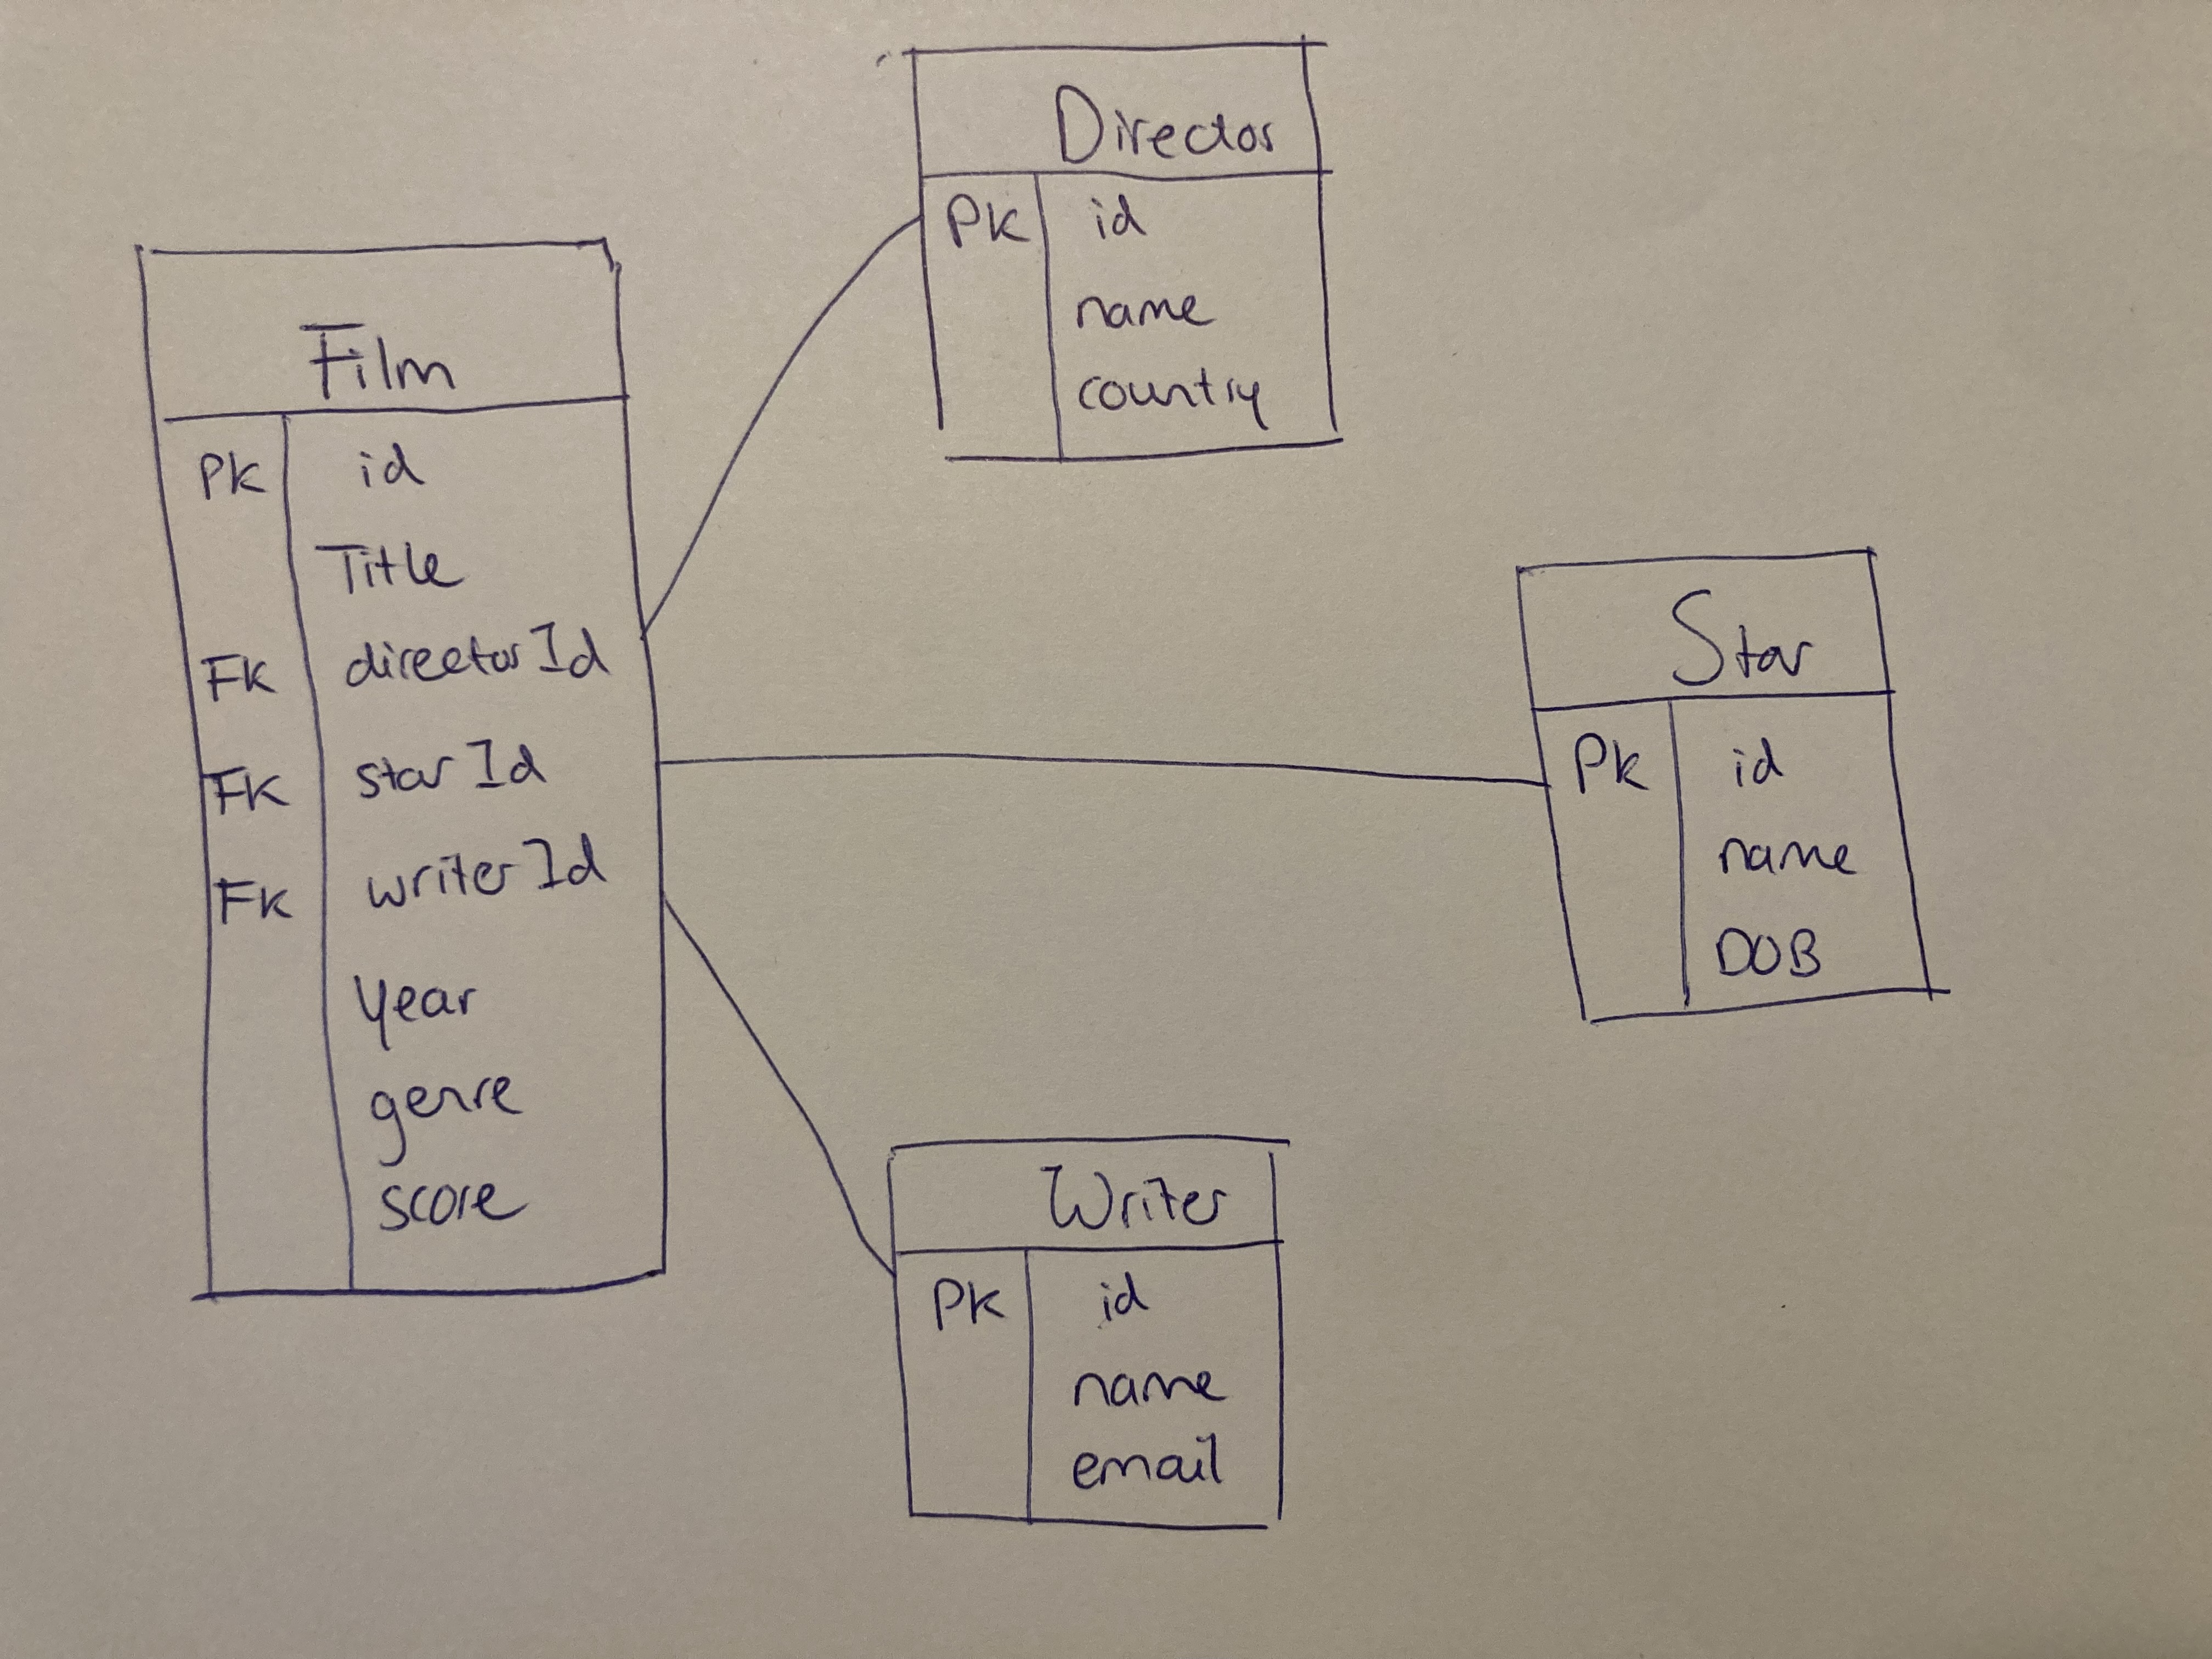 Film
PK id
Title
FK directorId
FK starId
FK writerId
year
genre
score
Director
PK id
name
country
Star
PK id
name
DOB
Writer
PK id
name
email